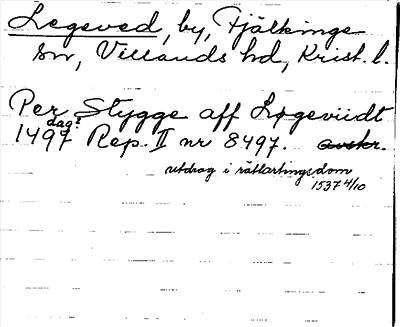 Legeved, by, Fjälkinge
sn, Villands hd, Krist. l.
Per Stygge aff Løgeviidt
1497 dag? Rep. II nr 8497. avskr.
utdrag i rättartingsdom
1537 4/10